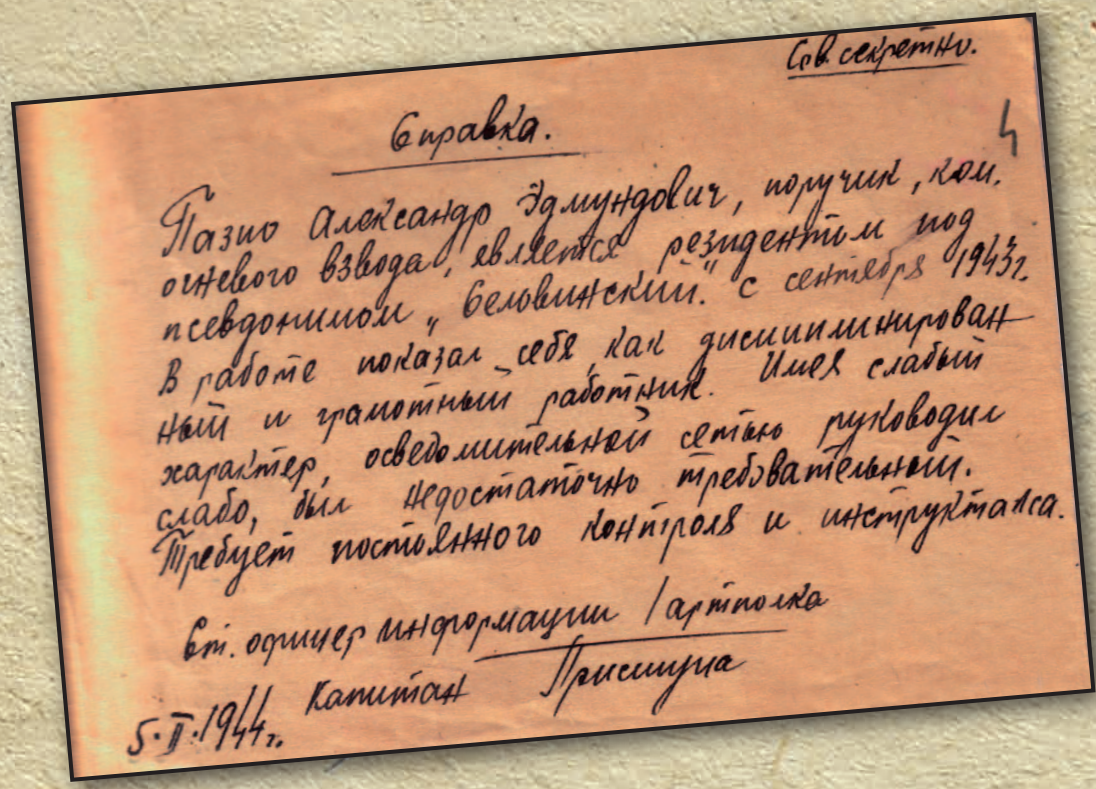 Сов. секретно.
4
Справка.
Пазио Александр Эдмундович, поручик, ком.
огневого взвода, является резидентом под
псевдонимом „Селовинский." с сентября 1943г.
В работе показал себя, как дисциплинирован
ный и грамотный работник. Имея слабый
характер, осведомительной сетью руководил
слабо, был недостаточно требовательный.
Требует постоянного контроля и инструктажа.
Ст. офицер информации 1 артполка
Капитан Присшупа
5.II.1944г.